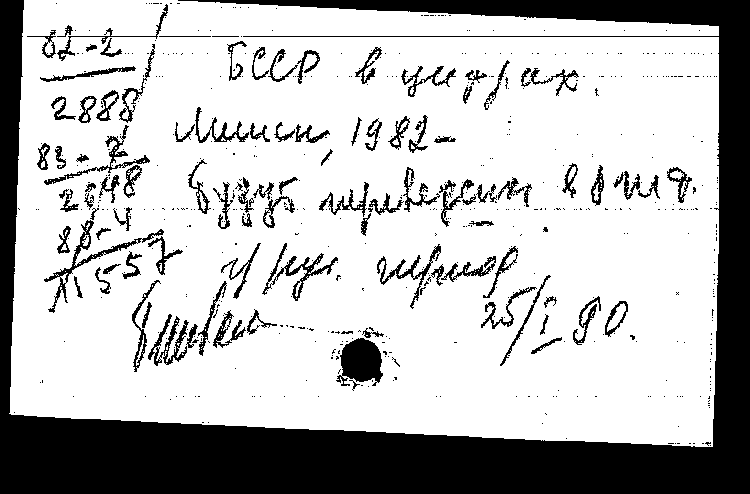 82-2
2888
83-2
2648
88-4
1557
БССР в цифрах.
Минск, 1982-
будут переведены в
из рус. период
25/I 90.